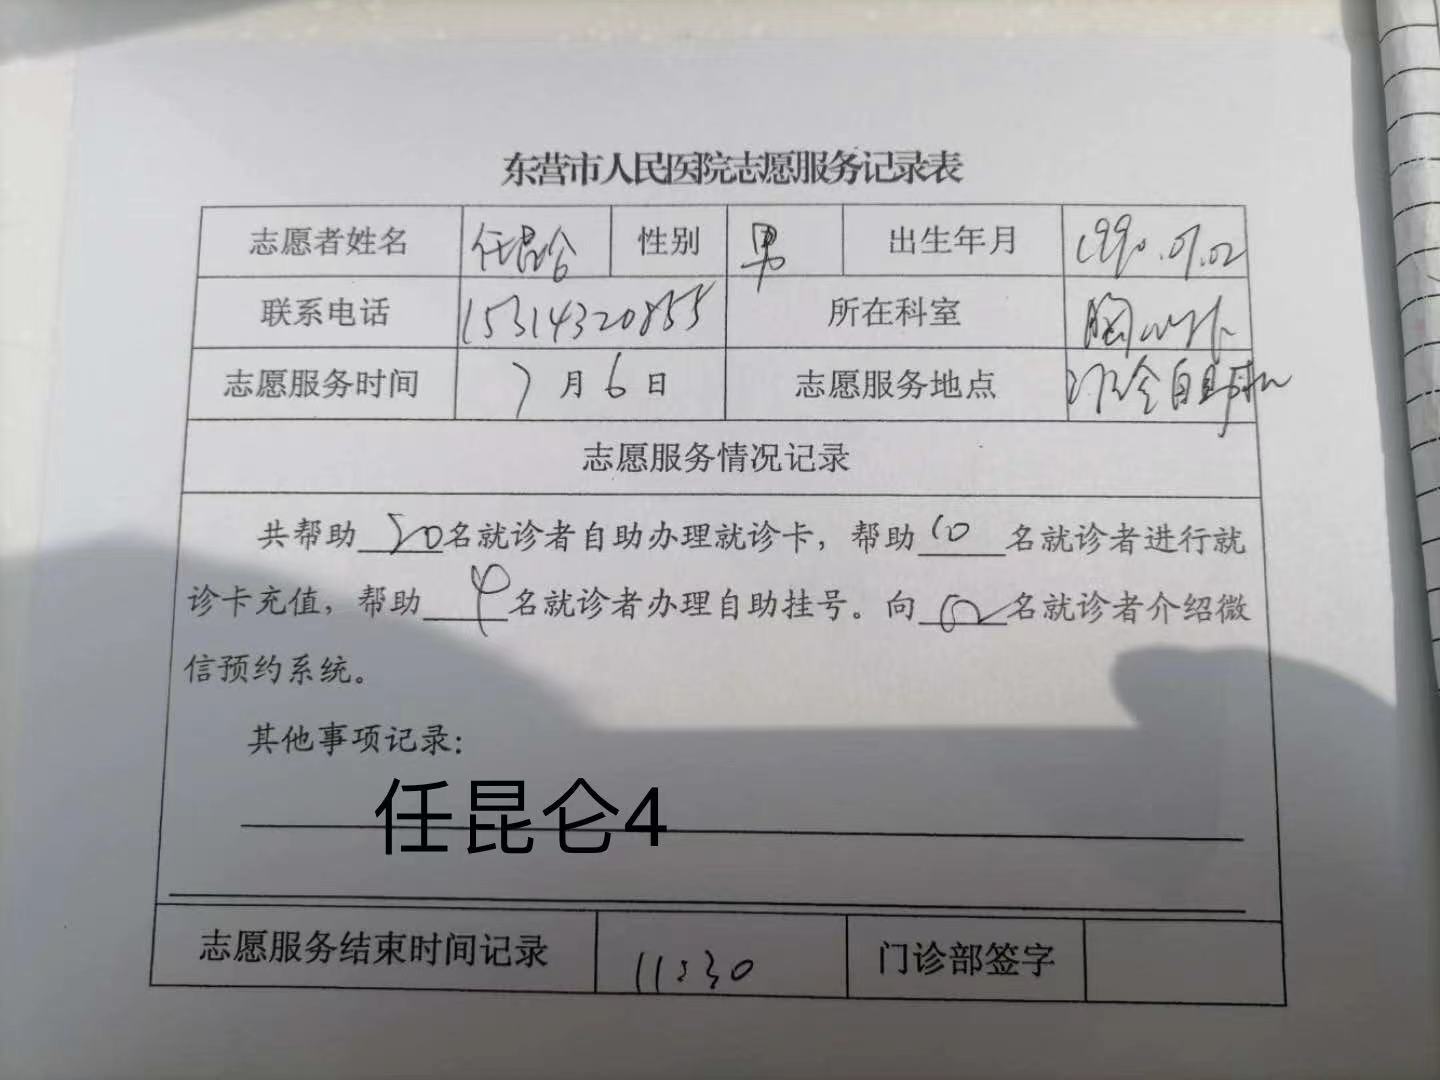 东营市人民医院志愿服务记录表
志愿者姓名 任昆仑 性别 男 出生年月 1990.01.02
联系电话 15314320855 所在科室 胸外科
志愿服务时间 7月6日 志愿服务地点 自助机
志愿服务情况记录
共帮助 20 名就诊者自助办理就诊卡，帮助 10 名就诊者进行就
诊卡充值，帮助 4 名就诊者办理自助挂号。向 名就诊者介绍微
信预约系统。
其他事项记录：
任昆仑4
志愿服务结束时间记录 11:30 门诊部签字